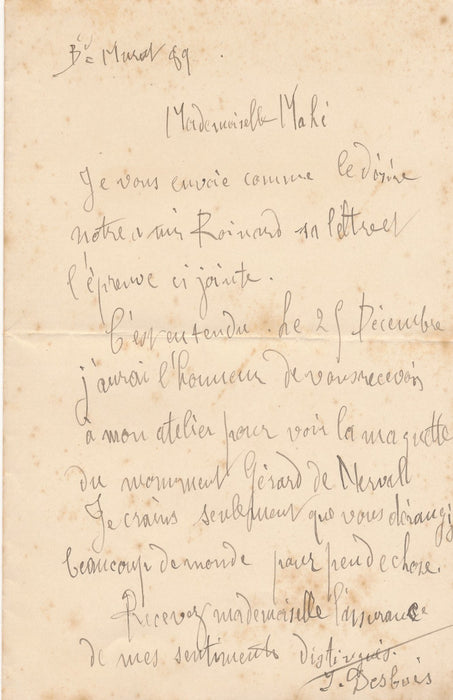 Bd Murat 89.
Mademoiselle Mahé
Je vous envoie comme le désire
notre ami Roinard sa lettre et
l'épreuve ci jointe.
C'est entendu. le 25 Décembre
j'aurai l'honneur de vous recevoir
à mon atelier pour voir la maquette
du monument Gérard de Nerval
Je crains seulement que vous dérangiez
beaucoup de monde pour peu de chose.
Recevez mademoiselle l'assurance
de mes sentiments distingués.
J. Desbois